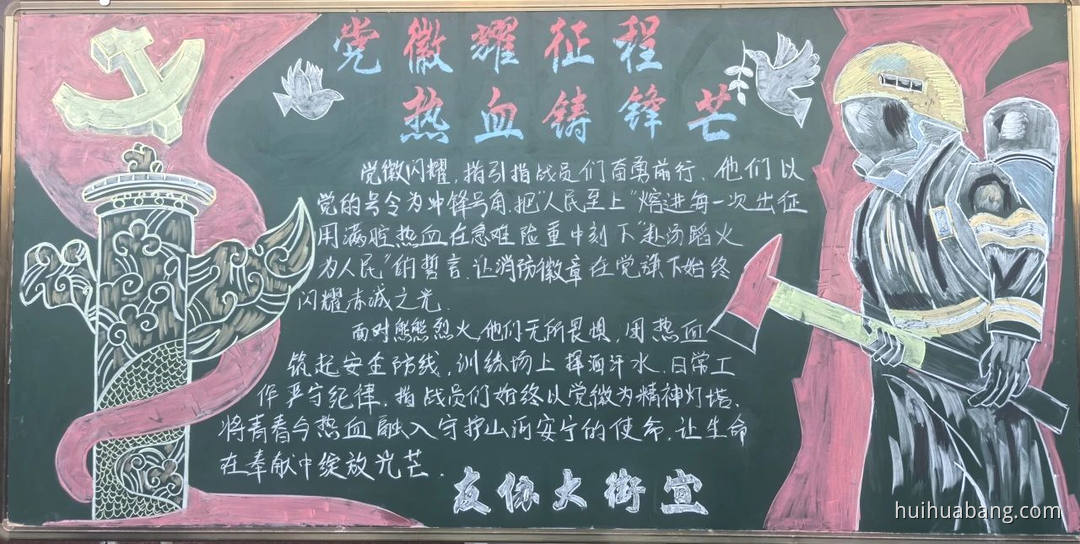 党徽耀征程
热血铸锋芒
党徽闪耀,指引指战员们奋勇前行、他们以
党的号令为冲锋号角,把"人民至上"熔进每一次出征
用满腔热血在急难险重中刻下"赴汤蹈火
为人民"的誓言,让消防徽章在党旗下始终
闪耀赤诚之光.
面对熊熊烈火,他们无所畏惧,用热血
筑起安全防线,训练场上挥洒汗水,日常工
作严守纪律,指战员们始终以党徽为精神灯塔、
将青春与热血融入守护山河安宁的使命,让生命
在奉献中绽放光芒.
友依大街宣
huihuabang.com